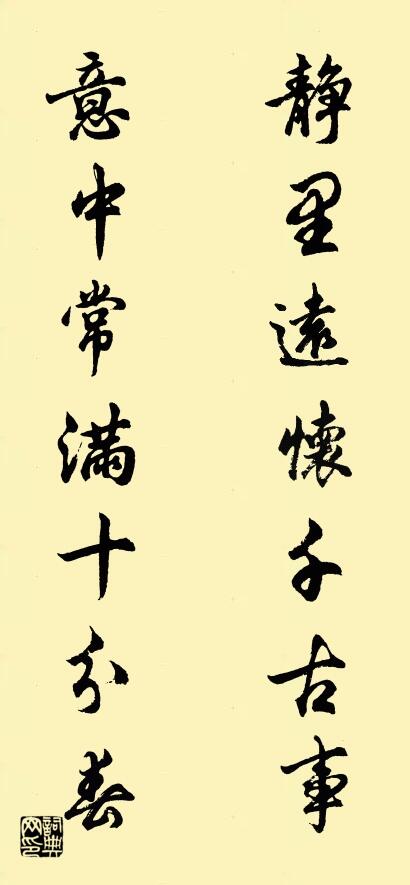 靜里遠懷千古事
意中常滿十分春
詞典網印